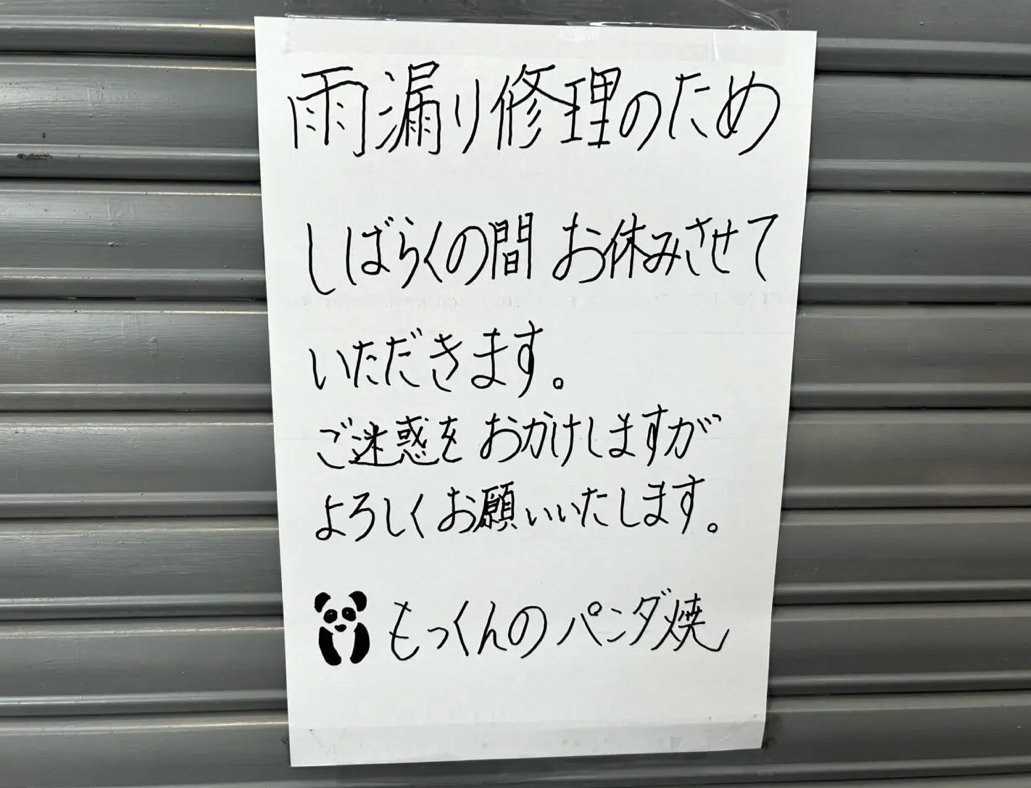 雨漏り修理のため
しばらくの間 お休みさせて
いただきます。
ご迷惑を おかけしますが
よろしくお願いいたします。
もっくんのパンダ焼